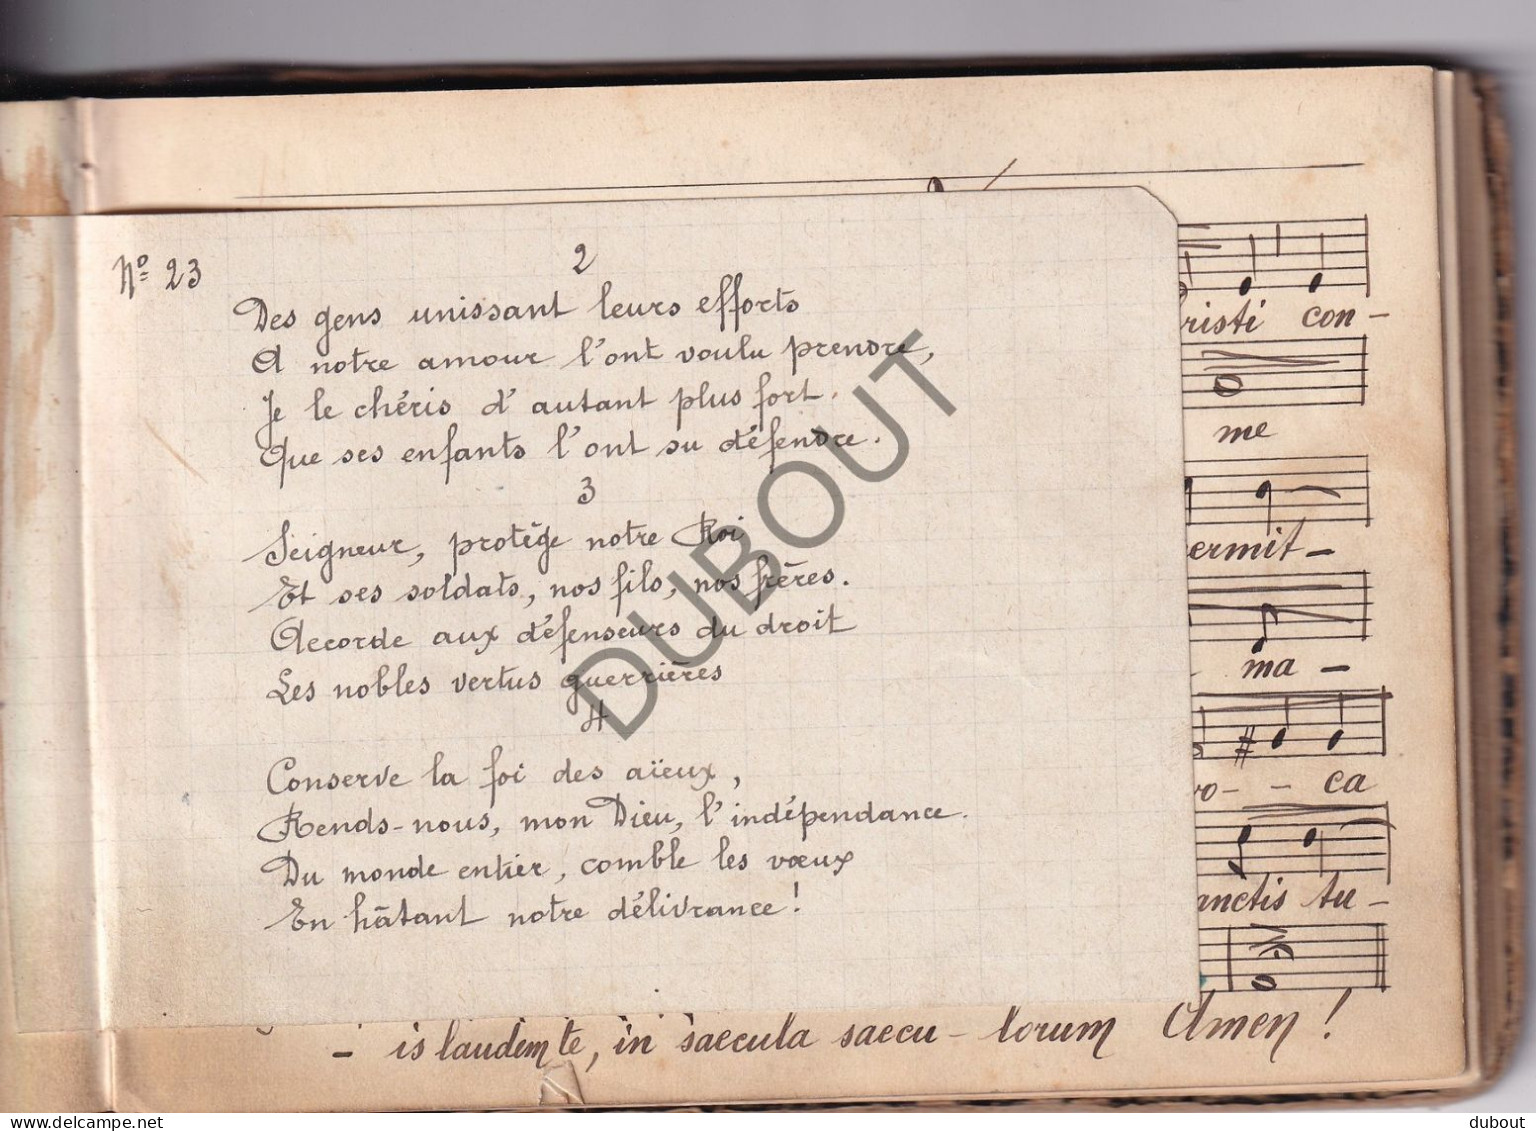 Nº 23
2
Des gens unissant leurs efforts
A notre amour l'ont voulu prendre,
Je le chéris d'autant plus fort.
Que ses enfants l'ont su défendre.
3
Seigneur, protège notre Roi
Et ses soldats, nos fils, nos frères.
Accorde aux défenseurs du droit
Les nobles vertus guerrières
4
Conserve la foi des aïeux,
Rends-nous, mon Dieu, l'indépendance.
Du monde entier, comble les vœux
En hâtant notre délivrance!
risti con-
me
ermit-
ma-
vo-- ca
anctis tu-
- is laudem te, in saecula saecu-lorum Amen!
DUBOUT
dubout